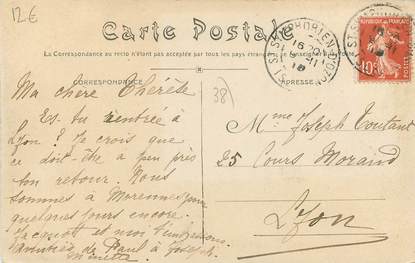 12€
Carte Postale
La Correspondance au recto n'étant pas acceptée par tous les pays étrangers
CORRESPONDANCE
ADRESSE
ST SYMPHORIEN D'OZON
REPUBLIQUE FRANÇAISE
10
POSTES
38)
Ma chère Thérèse
Es-tu rentrée à
Lyon ? Je crois que
ce doit-être a peu près
ton retour. Nous
sommes à Marennes pour
quelques jours encore.
et moi t'embrassons
de Paul à Joseph.
Minette
Mme Joseph Toutant
25 Cours Morand
Lyon